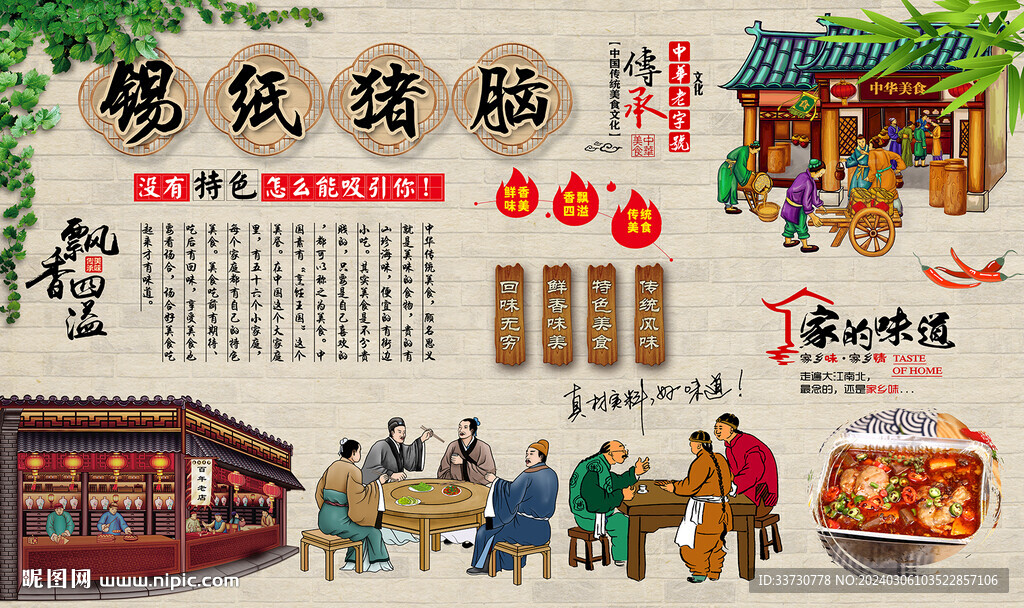 锡纸猪脑
【中国传统美食文化】
傳承
中華美食
中華老字號
文化
没有特色怎么能吸引你!
鲜香
味美
香飘
四溢
传统
美食
飘香四溢
中华传统美食,顾名思义
就是美味的食物,贵的有
山珍海味,便宜的有街边
小吃。其实美食是不分贵
贱的,只要是自己喜欢的
,都可以称之为美食。中
国素有“烹饪王国”这个
美誉。在中国这个大家庭
里,有五十六个小家庭,
每个家庭都有自己的特色
美食。美食吃前有期待、
吃后有回味,享受美食也
要看场合,场合好美食吃
起来才有味道。
回味无穷
鲜香味美
特色美食
传统风味
真材实料,好味道!
中华美食
家的味道
家乡味·家乡情
TASTE
OF HOME
走遍大江南北,
最念的,还是家乡味...
百年老店
昵图网 www.nipic.com
ID:33730778 NO:20240306103522857106